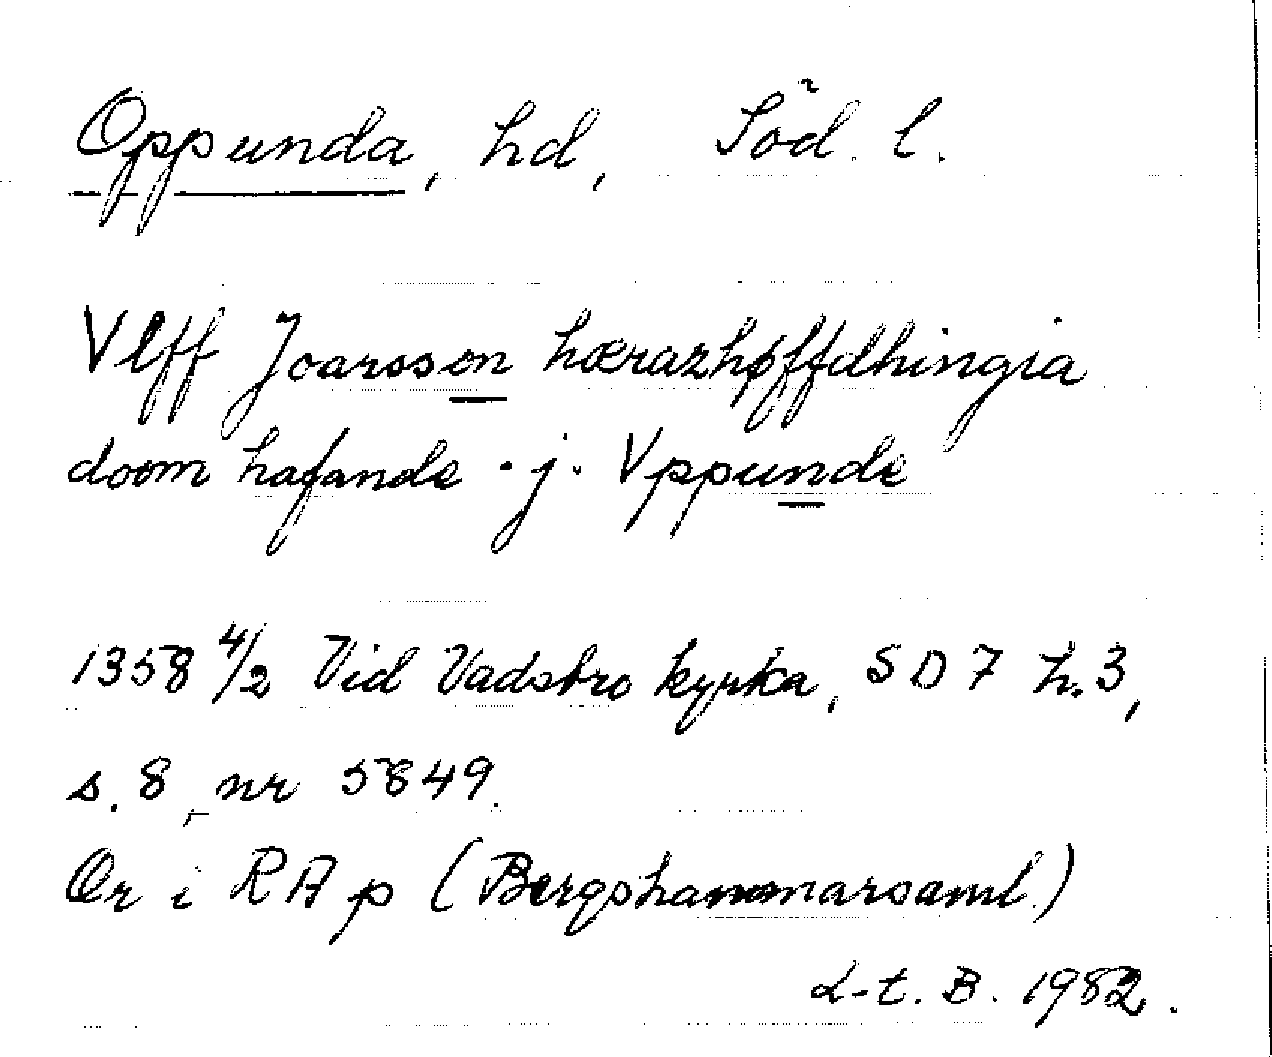 Oppunda, hd, Söd. l.
Vlff Joarsson hærazhøffdhingia
doom hafande · j · Vppunde
1358 4/2 Vid Vadsbro kyrka, SD 7 h. 3,
s. 8, nr 5849.
Or i RA p (Bergshammarsaml.)
L-t. B. 1982.